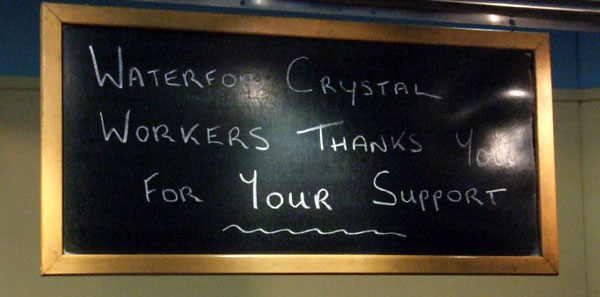 Waterfor Crystal
Workers Thanks You
For Your Support